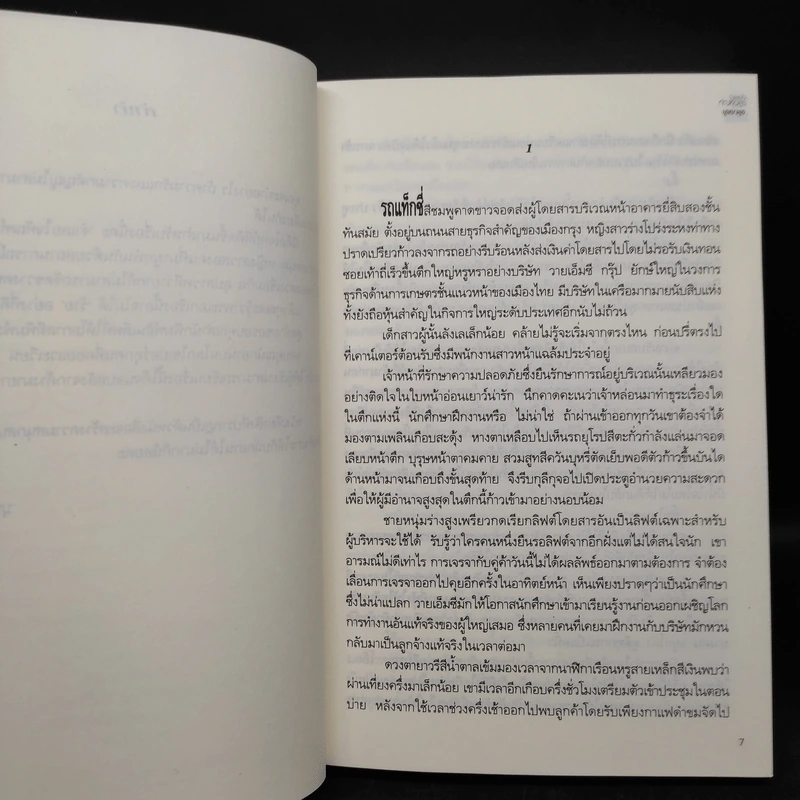 1
รถแท็กซี่สีชมพูคาดขาวจอดส่งผู้โดยสารบริเวณหน้าอาคารยี่สิบสองชั้น
ทันสมัย ตั้งอยู่บนถนนสายธุรกิจสำคัญของเมืองกรุง หญิงสาวร่างโปร่งระหงท่าทาง
ปราดเปรียวก้าวลงจากรถอย่างรีบร้อนหลังส่งเงินค่าโดยสารไปโดยไม่รอรับเงินทอน
ซอยเท้าถี่เร็วขึ้นตึกใหญ่หรูหราอย่างบริษัท วายเอ็มซี กรุ๊ป ยักษ์ใหญ่ในวงการ
ธุรกิจด้านการเกษตรชั้นแนวหน้าของเมืองไทย มีบริษัทในเครือมากมายนับสิบแห่ง
ทั้งยังถือหุ้นสำคัญในกิจการใหญ่ระดับประเทศอีกนับไม่ถ้วน
เด็กสาวผู้นั้นลังเลเล็กน้อย คล้ายไม่รู้จะเริ่มจากตรงไหน ก่อนปรี่ตรงไป
ที่เคาน์เตอร์ต้อนรับซึ่งมีพนักงานสาวหน้าแฉล้มประจำอยู่
เจ้าหน้าที่รักษาความปลอดภัยซึ่งยืนรักษาการณ์อยู่บริเวณนั้นเหลียวมอง
อย่างติดใจในใบหน้าอ่อนเยาว์น่ารัก นึกคาดคะเนว่าเจ้าหล่อนมาทำธุระเรื่องใด
ในตึกแห่งนี้ นักศึกษาฝึกงานหรือ ไม่น่าใช่ ถ้าผ่านเข้าออกทุกวันเขาต้องจำได้
มองตามเพลินเกือบสะดุ้ง หางตาเหลือบไปเห็นรถยุโรปสีตะกั่วกำลังแล่นมาจอด
เลียบหน้าตึก บุรุษหน้าตาคมคาย สวมสูทสีควันบุหรี่ตัดเย็บพอดีตัวก้าวขึ้นบันได
ด้านหน้ามาจนเกือบถึงขั้นสุดท้าย จึงรีบกุลีกุจอไปเปิดประตูอำนวยความสะดวก
เพื่อให้ผู้มีอำนาจสูงสุดในตึกนี้ก้าวเข้ามาอย่างนอบน้อม
ชายหนุ่มร่างสูงเพรียวกดเรียกลิฟต์โดยสารอันเป็นลิฟต์เฉพาะสำหรับ
ผู้บริหารจะใช้ได้ รับรู้ว่าใครคนหนึ่งยืนรอลิฟต์จากอีกฝั่งแต่ไม่ได้สนใจนัก เขา
อารมณ์ไม่ดีเท่าไร การเจรจากับคู่ค้าวันนี้ไม่ได้ผลลัพธ์ออกมาตามต้องการ จำต้อง
เลื่อนการเจรจาออกไปคุยอีกครั้งในอาทิตย์หน้า เห็นเพียงปราดๆว่าเป็นนักศึกษา
ซึ่งไม่น่าแปลก วายเอ็มซีมักให้โอกาสนักศึกษาเข้ามาเรียนรู้งานก่อนออกเผชิญโลก
การทำงานอันแท้จริงของผู้ใหญ่เสมอ ซึ่งหลายคนที่เคยมาฝึกงานกับบริษัทมักหวน
กลับมาเป็นลูกจ้างแท้จริงในเวลาต่อมา
ดวงตายาวรีสีน้ำตาลเข้มมองเวลาจากนาฬิกาเรือนหรูสายเหล็กสีเงินพบว่า
ผ่านเที่ยงครึ่งมาเล็กน้อย เขามีเวลาอีกเกือบครึ่งชั่วโมงเตรียมตัวเข้าประชุมในตอน
บ่าย หลังจากใช้เวลาช่วงครึ่งเช้าออกไปพบลูกค้าโดยรับเพียงกาแฟดำขมจัดไป
7